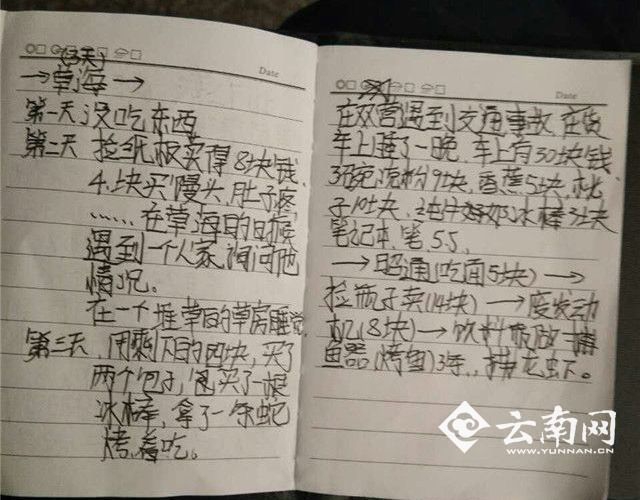 Date
(3天)
→草海→
第一天没吃东西
第二天 捡纸板卖得8块钱,
4块买馒头,肚子疼,
……在草海的时候
遇到一个人家,询问他
情况。
在一个堆草的草房睡觉
第三天,用剩下的四块,买了
两个包子,买了一根
冰棒,拿了一条蛇
烤着吃。
Date
在双营遇到交通事故,在货
车上睡了一晚,车上有30块钱
3碗凉粉9块,香蕉5块,桃
子10块,冰棒3块
笔记本,笔5.5,
→昭通(吃面5块)→
捡瓶子卖(14块)→废发动
机(8块)→饮料瓶做捕
鱼器(烤鱼)3条,龙虾。
云南网
WWW.YUNNAN.CN